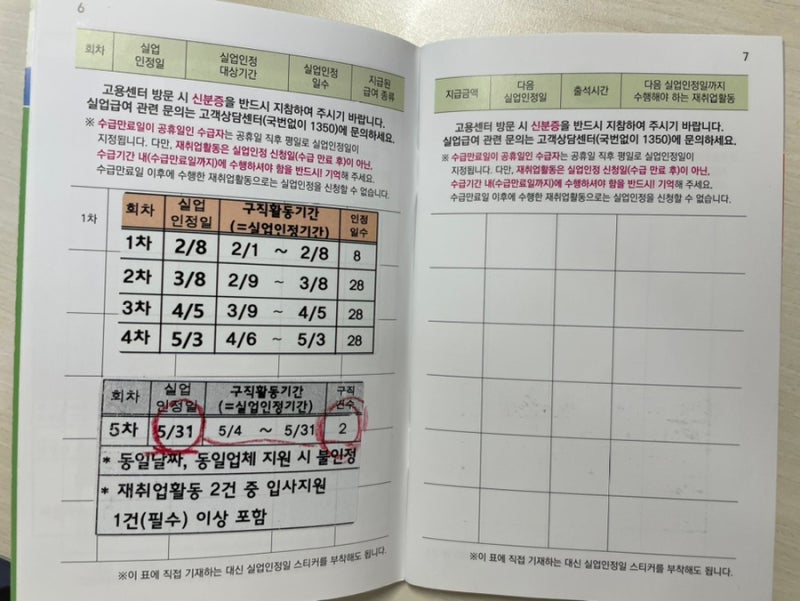 6
회차 실업인정일 실업인정 대상기간 실업인정 일수 지급된 급여 종류
고용센터 방문 시 신분증을 반드시 지참하여 주시기 바랍니다.
실업급여 관련 문의는 고객상담센터(국번없이 1350)에 문의하세요.
※ 수급만료일이 공휴일인 수급자는 공휴일 직후 평일로 실업인정일이
지정됩니다. 다만, 재취업활동은 실업인정 신청일(수급 만료 후)이 아닌,
수급기간 내(수급만료일까지)에 수행하셔야 함을 반드시! 기억해 주세요.
수급만료일 이후에 수행한 재취업활동으로는 실업인정을 신청할 수 없습니다.
1차
회차 실업인정일 구직활동기간 (=실업인정기간) 인정일수
1차 2/8 2/1 ~ 2/8 8
2차 3/8 2/9 ~ 3/8 28
3차 4/5 3/9 ~ 4/5 28
4차 5/3 4/6 ~ 5/3 28
회차 실업인정일 구직활동기간 (=실업인정기간) 구직건수
5차 5/31 5/4 ~ 5/31 2
* 동일날짜, 동일업체 지원 시 불인정
* 재취업활동 2건 중 입사지원
1건(필수) 이상 포함
※이 표에 직접 기재하는 대신 실업인정일 스티커를 부착해도 됩니다.
7
지급금액 다음 실업인정일 출석시간 다음 실업인정일까지 수행해야 하는 재취업활동
고용센터 방문 시 신분증을 반드시 지참하여 주시기 바랍니다.
실업급여 관련 문의는 고객상담센터(국번없이 1350)에 문의하세요.
※ 수급만료일이 공휴일인 수급자는 공휴일 직후 평일로 실업인정일이
지정됩니다. 다만, 재취업활동은 실업인정 신청일(수급 만료 후)이 아닌,
수급기간 내(수급만료일까지)에 수행하셔야 함을 반드시! 기억해 주세요.
수급만료일 이후에 수행한 재취업활동으로는 실업인정을 신청할 수 없습니다.
※이 표에 직접 기재하는 대신 실업인정일 스티커를 부착해도 됩니다.